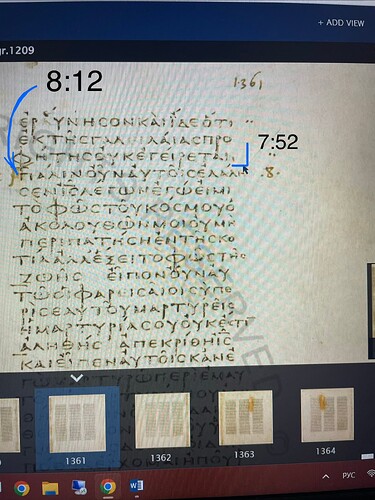 + ADD VIEW
gr.1209
8:12
1361
ΕΡΑΥΝΗϹΟΝΚΑΙΙΔΕΟΤΙ
ΕΚΤΗϹΓΑΛΕΙΛΑΙΑϹΠΡΟ
7:52
ΦΗΤΗϹΟΥΚΕΓΕΙΡΕΤΑΙ
ΠΑΛΙΝΟΥΝΑΥΤΟΙϹΕΛΑΛΗ
.8.
ϹΕΝΙϹΛΕΓΩΝΕΓΩΕΙΜΙ
ΤΟΦΩϹΤΟΥΚΟϹΜΟΥΟ
ΑΚΟΛΟΥΘΩΝΜΟΙΟΥΜΗ
ΠΕΡΙΠΑΤΗϹΗΕΝΤΗϹΚΟ
ΤΙΑΑΛΛΕΞΕΙΤΟΦΩϹΤΗϹ
ΖΩΗϹ ΕΙΠΟΝΟΥΝΑΥ
ΤΩΟΙΦΑΡΕΙϹΑΙΟΙϹΥΠΕ
ΡΙϹΕΑΥΤΟΥΜΑΡΤΥΡΕΙϹ
ΗΜΑΡΤΥΡΙΑϹΟΥΟΥΚΕϹΤΙ
ΑΛΗΘΗϹ ΑΠΕΚΡΙΘΗΙϹ
ΚΑΙΕΙΠΕΝΑΥΤΟΙϹΚΑΝΕ
ΓΩΜΑΡΤΥΡΩΠΕΡΙΕΜΑΥ
1361 1362 1363 1364
РУС